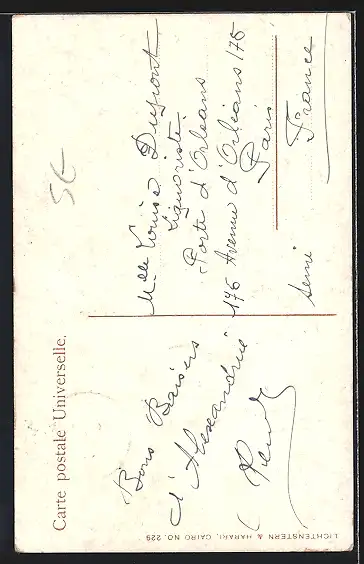 Carte postale Universelle.
Bons Baisers
d'Alexandrie
Mlle Louise Dupont
Liquoriste
Porte d'Orléans
176 Avenue d'Orléans 176
Paris
Seine
France
5€
LICHTENSTERN & HARARI, CAIRO NO. 229